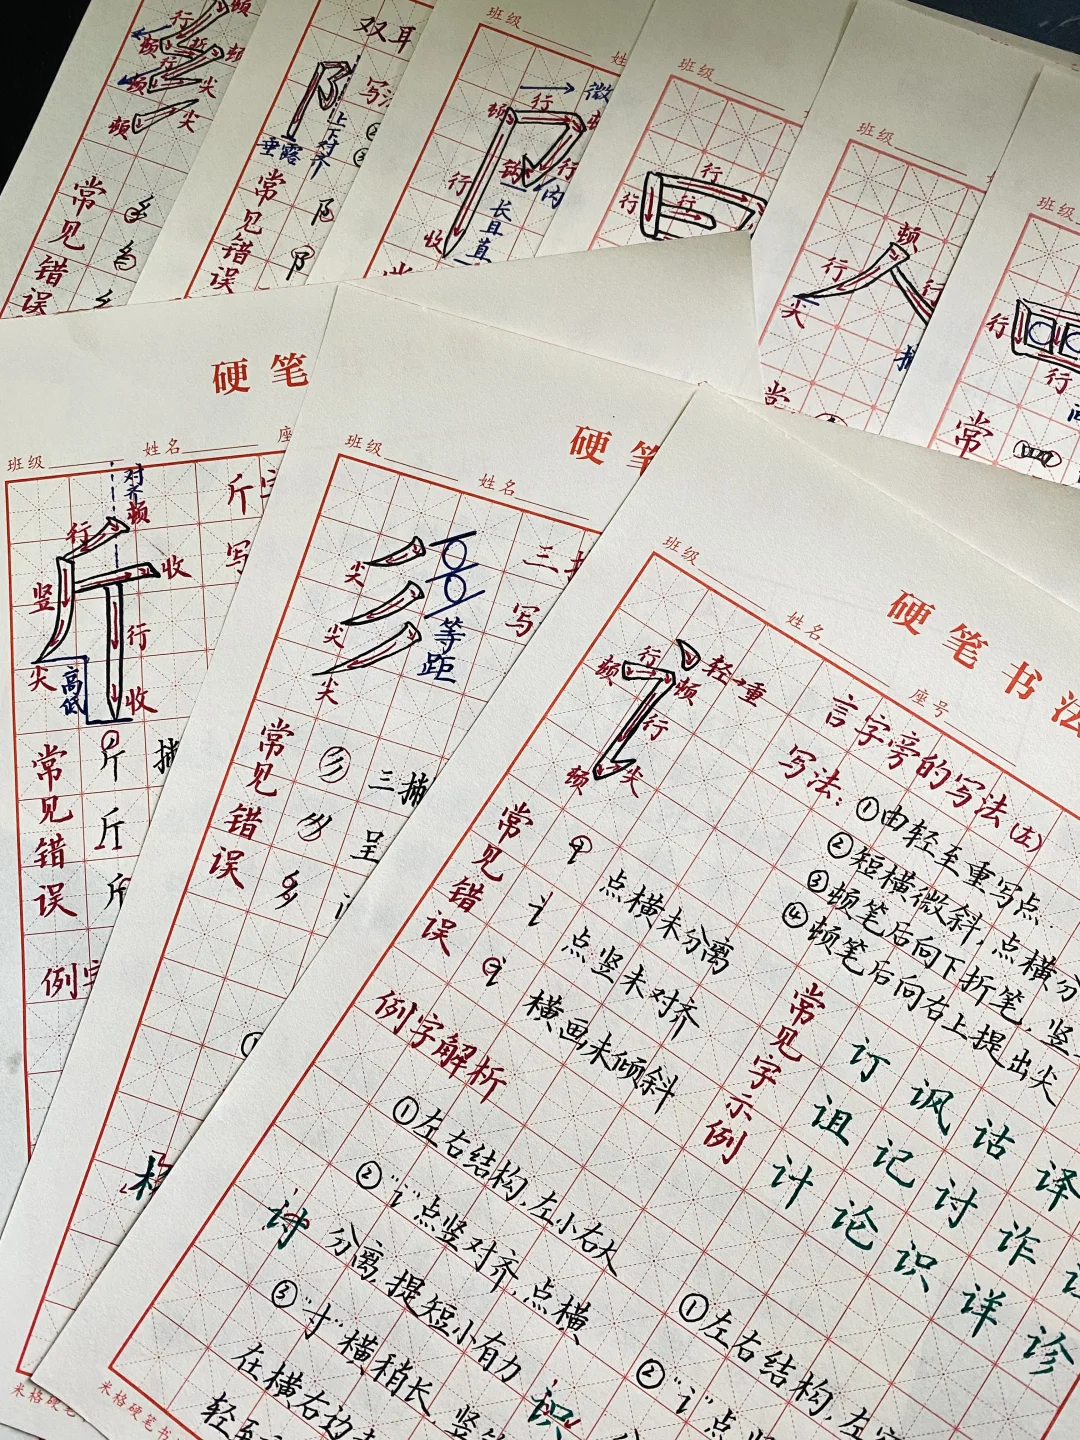 行
顿
折
顿
顿
行
顿
尖
顿
尖
常见错误
双耳
写
上下对齐
垂露
常见错误
班级
姓
行
微
顿
钩
行
内
行
长且直
收
常
班级
行
行
行
班级
顿
行
行
尖
常
班级
行
行
常
硬笔
班级
姓名
座
对齐
顿
行
收
竖
行
尖
高低
收
斤字
写
常见错误
斤
斤
斤
例字
硬笔
班级
姓名
尖
尖
尖
等距
三撇
写
常见错误
三撇
呈
硬笔书法
班级
姓名
座号
轻→重
行
顿
顿
行
顿
尖
言字旁的写法(左)
写法:
①由轻至重写点.
②短横微斜,点横分
③顿笔后向下折笔,竖
④顿笔后向右上提出尖
常见错误
点横未分离
点竖未对齐
横画未倾斜
常见字示例
订 讽 诂 译
诅 记 讨 诈
计 论 识 详 诊
例字解析
讨
①左右结构,左小右大
②"讠"点竖对齐,点横
分离,提短小有力
③"寸"横稍长,竖钩
在横右边
轻至
识
①左右结构,左
②"讠"点
米格硬笔
米格硬笔书